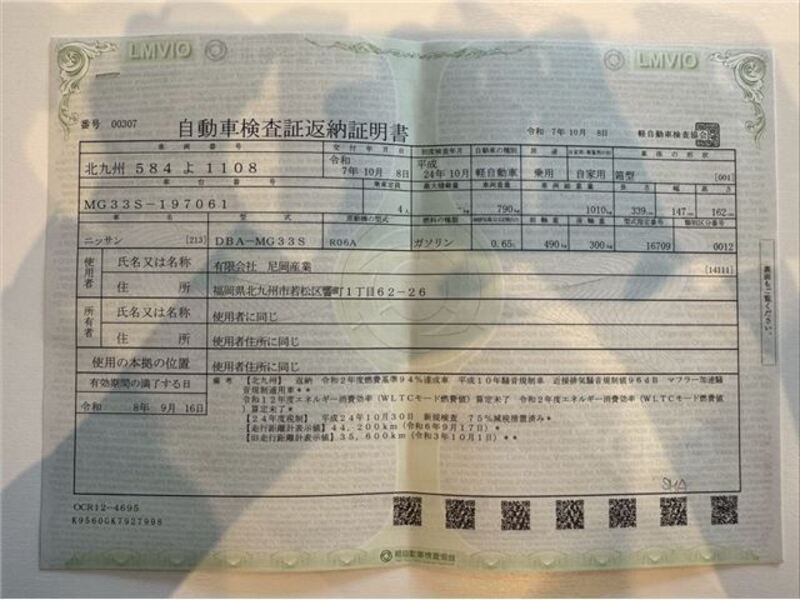 LMVIO
LMVIO
番号 00307
自動車検査証返納証明書
令和 7年10月 8日
軽自動車検査協会
車両番号 交付年月日 初度検査年月 自動車の種別 用途 自家用・事業用の別 車体の形状
北九州 584 よ 1108
令和 7年10月 8日
平成 24年10月
軽自動車 乗用 自家用 箱型 [001]
車台番号 乗車定員 最大積載量 車両重量 車両総重量 長さ 幅 高さ
MG33S-197061 4人 -kg 790kg 1010kg 339cm 147cm 162cm
車名 型式 原動機の型式 燃料の種類 前軸重 後軸重 型式指定番号 類別区分番号
ニッサン [213] DBA-MG33S R06A ガソリン 0.65L 490kg 300kg 16709 0012
使用者 氏名又は名称 有限会社 尼岡産業 [14111]
住所 福岡県北九州市若松区響町1丁目62-26
所有者 氏名又は名称 使用者に同じ
住所 使用者住所に同じ
使用の本拠の位置 使用者住所に同じ
有効期間の満了する日
令和 8年 9月 16日
備考 【北九州】 返納 令和2年度燃費基準94%達成車 平成10年騒音規制車 近接排気騒音規制値96dB マフラー加速騒
音規制適用車**
令和12年度エネルギー消費効率(WLTCモード燃費値)算定未了 令和2年度エネルギー消費効率(WLTCモード燃費値
)算定未了*
【24年度税制】 平成24年10月30日 新規検査 75%減税措置済み*
【走行距離計表示値】44,200km(令和6年9月17日)*
【旧走行距離計表示値】35,600km(令和3年10月1日)**
裏面もご覧ください。
OCR12-4695
K9560GK7927998
軽自動車検査協会